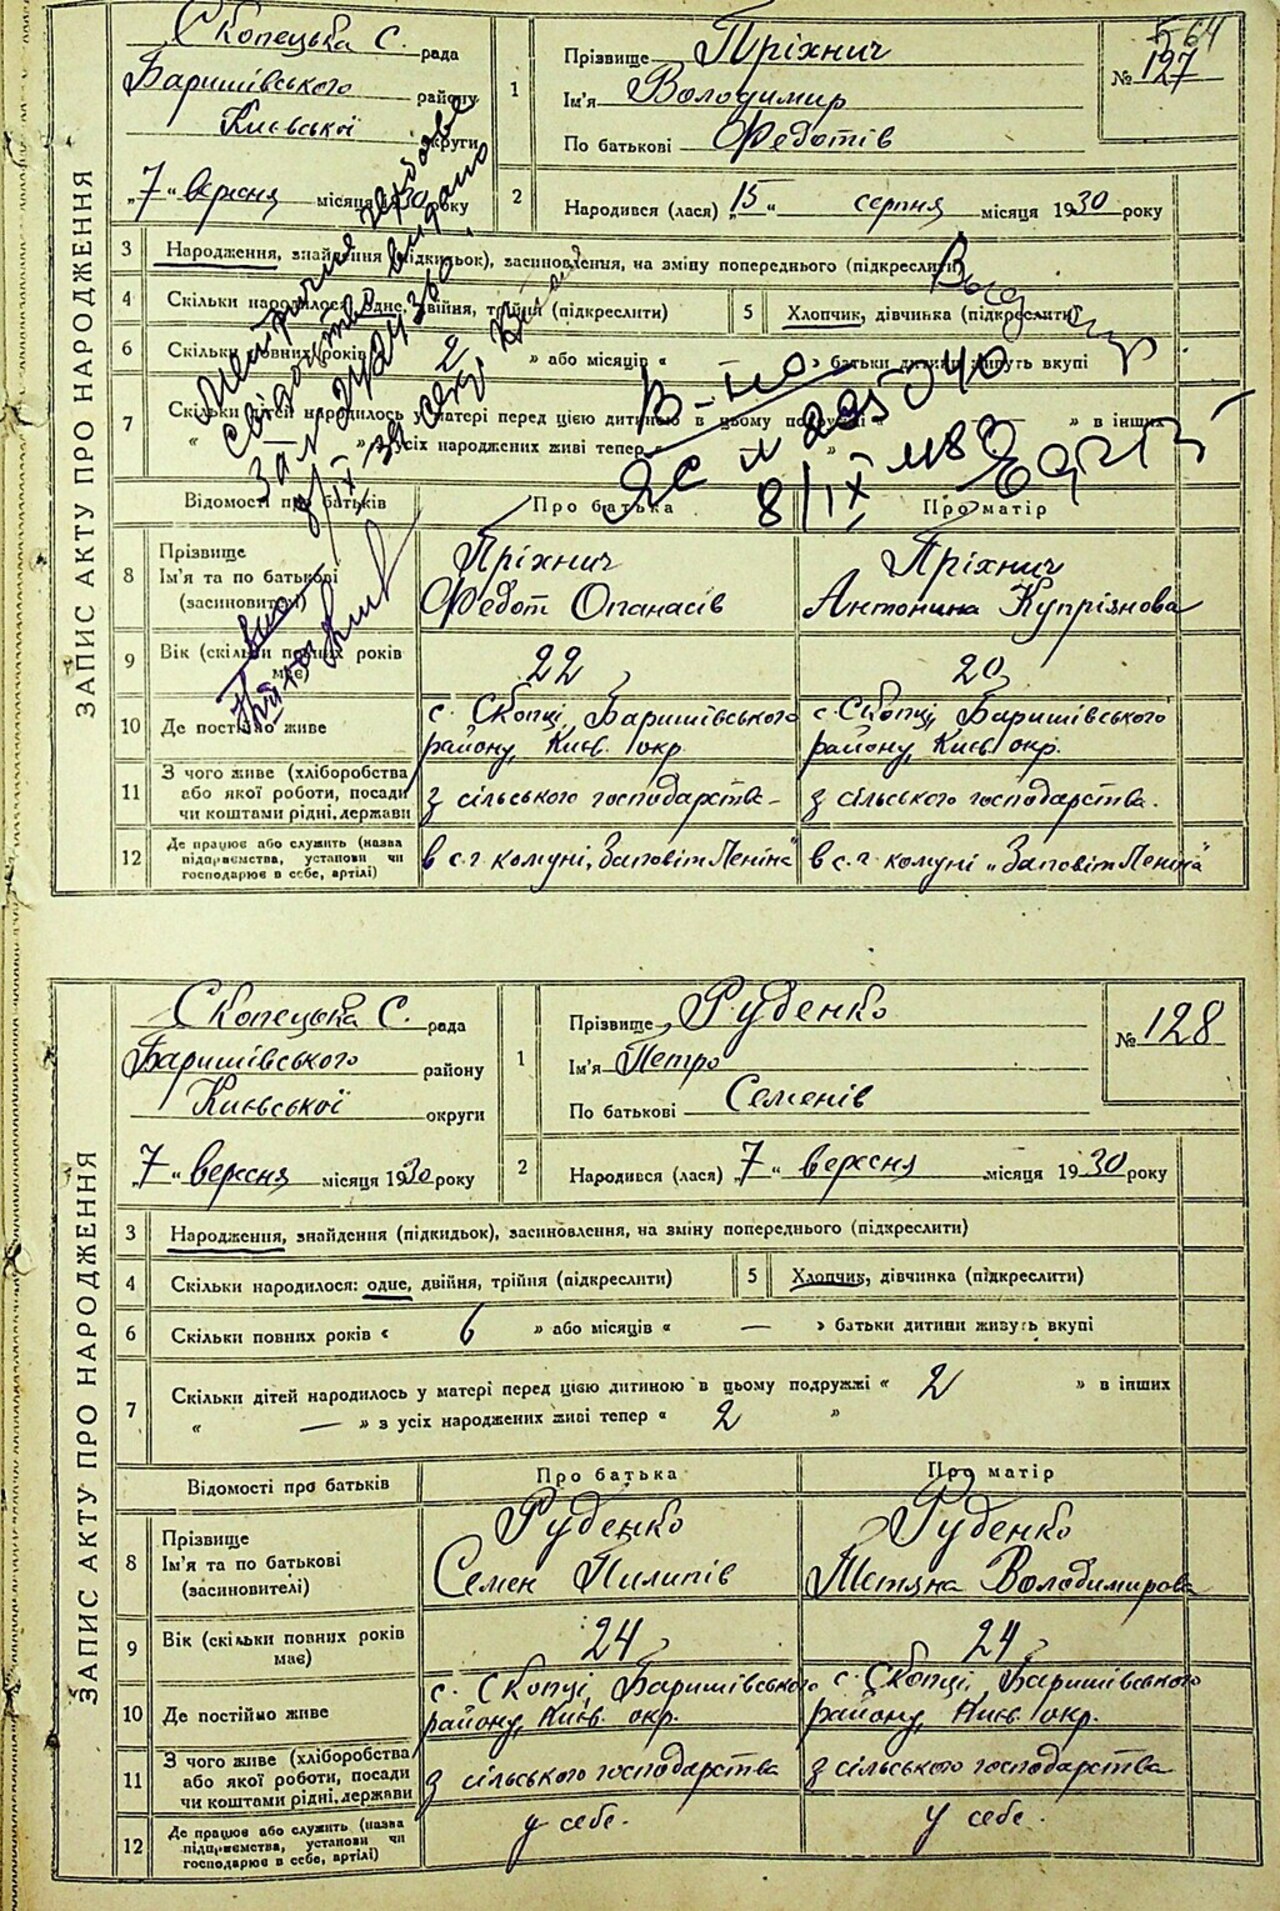 ЗАПИС АКТУ ПРО НАРОДЖЕННЯ
Скопецька С. рада
Баришівського району
Київської округи
„7“ вересня місяця 1930 року
64
№ 127
1 Прізвище Пріхнич
Ім'я Володимир
По батькові Федотів
2 Народився (лася) „15“ серпня місяця 1930 року
3 Народження, знайдення (підкидьок), засиновлення, на зміну попереднього (підкреслити)
4 Скільки народилося: одне, двійня, трійня (підкреслити)
5 Хлопчик, дівчинка (підкреслити)
6 Скільки повних років » або місяців « » батьки дитини живуть вкупі
7 Скільки дітей народилось у матері перед цією дитиною в цьому подружжі « — » в інших
« » з усіх народжених живі тепер « »
свідоцтво видано
8/IX
8/IX
Відомості про батьків Про батька Про матір
8 Прізвище Ім'я та по батькові (засиновителі)
Пріхнич Федот Опанасів
Пріхнич Антонина Купріянова
9 Вік (скільки повних років має) 22 20
10 Де постійно живе
с. Скопці, Баришівського району, Київ. окр.
с. Скопці, Баришівського району, Київ. окр.
11 З чого живе (хліборобства або якої роботи, посади чи коштами рідні, держави
з сільського господарства – з сільського господарства.
12 Де працює або служить (назва підприємства, установи чи господарює в себе, артілі)
в с.г. комуні „Заповіт Леніна“ в с.г. комуні „Заповіт Леніна“
ЗАПИС АКТУ ПРО НАРОДЖЕННЯ
Скопецька С. рада
Баришівського району
Київської округи
„7“ вересня місяця 1930 року
№ 128
1 Прізвище Руденко
Ім'я Петро
По батькові Семенів
2 Народився (лася) „7“ вересня місяця 1930 року
3 Народження, знайдення (підкидьок), засиновлення, на зміну попереднього (підкреслити)
4 Скільки народилося: одне, двійня, трійня (підкреслити)
5 Хлопчик, дівчинка (підкреслити)
6 Скільки повних років « 6 » або місяців « — » батьки дитини живуть вкупі
7 Скільки дітей народилось у матері перед цією дитиною в цьому подружжі « 2 » в інших
« — » з усіх народжених живі тепер « 2 »
Відомості про батьків Про батька Про матір
8 Прізвище Ім'я та по батькові (засиновителі)
Руденко Семен Пилипів
Руденко Тетяна Володимирова
9 Вік (скільки повних років має) 24 24
10 Де постійно живе
с. Скопці, Баришівського району, Київ. окр.
с. Скопці, Баришівського району, Київ. окр.
11 З чого живе (хліборобства або якої роботи, посади чи коштами рідні, держави
з сільського господарства з сільського господарства
12 Де працює або служить (назва підприємства, установи чи господарює в себе, артілі)
у себе. у себе.